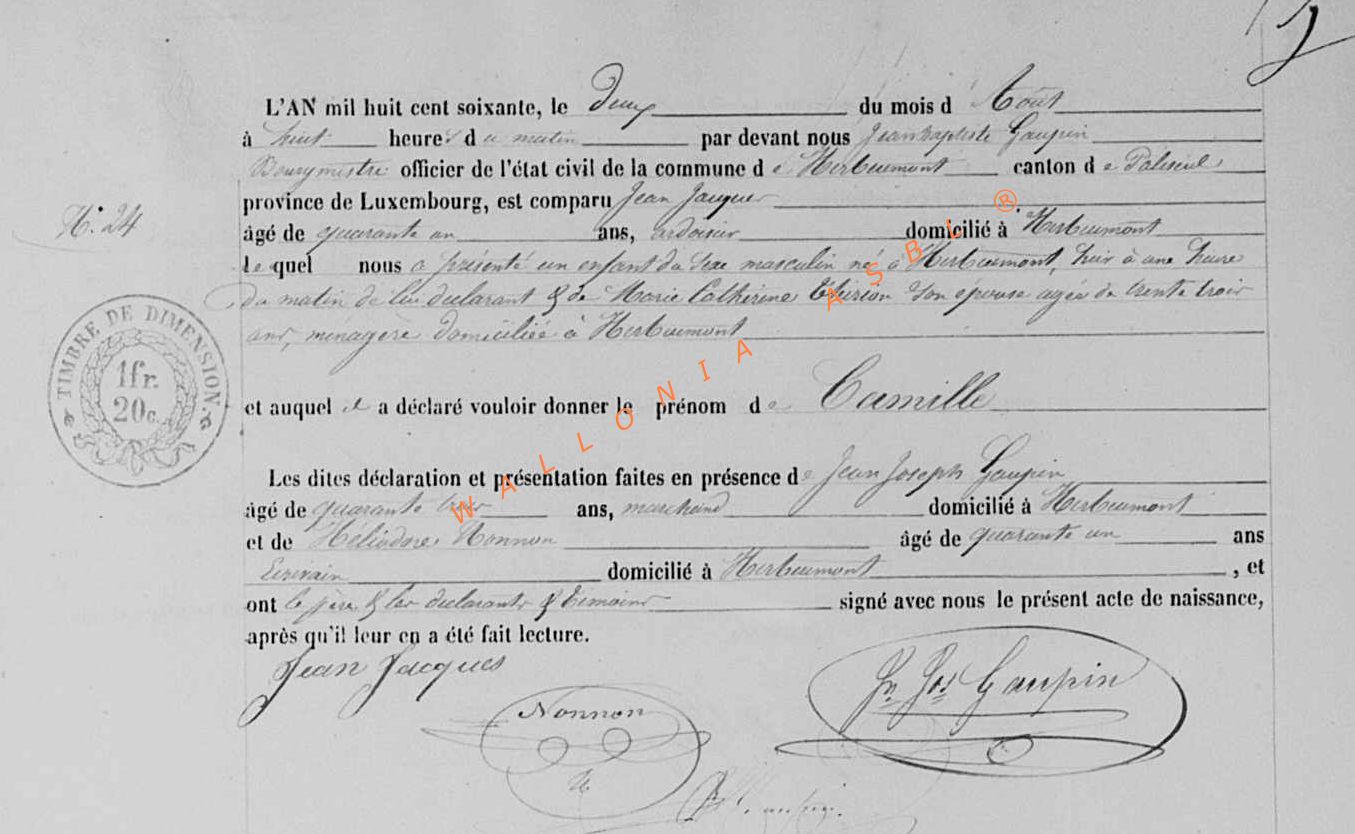 L'AN mil huit cent soixante, le Deux du mois d'Août
à huit heures du matin par devant nous Jean baptiste Gaupin
Bourgmestre officier de l'état civil de la commune de Herbeumont canton de Paliseul
province de Luxembourg, est comparu Jean Jacques
N° 24
âgé de quarante un ans, ardoisier domicilié à Herbeumont
lequel nous a présenté un enfant du sexe masculin né à Herbeumont, hier à une heure
du matin de lui déclarant & de Marie Catherine Thirion son épouse agée de trente trois
ans, menagère domiciliée à Herbeumont
TIMBRE DE DIMENSION.
1fr.
20c.
et auquel il a déclaré vouloir donner le prénom de Camille
Les dites déclaration et présentation faites en présence de Jean Joseph Gaupin
âgé de quarante trois ans, marchand domicilié à Herbeumont
et de Héliodore Nonnon âgé de quarante un ans
Ecrivain domicilié à Herbeumont, et
ont le père & les déclarants & temoins signé avec nous le présent acte de naissance,
après qu'il leur en a été fait lecture.
Jean Jacques
Jn Jos Gaupin
Nonnon
WALLONIA ASBL ®